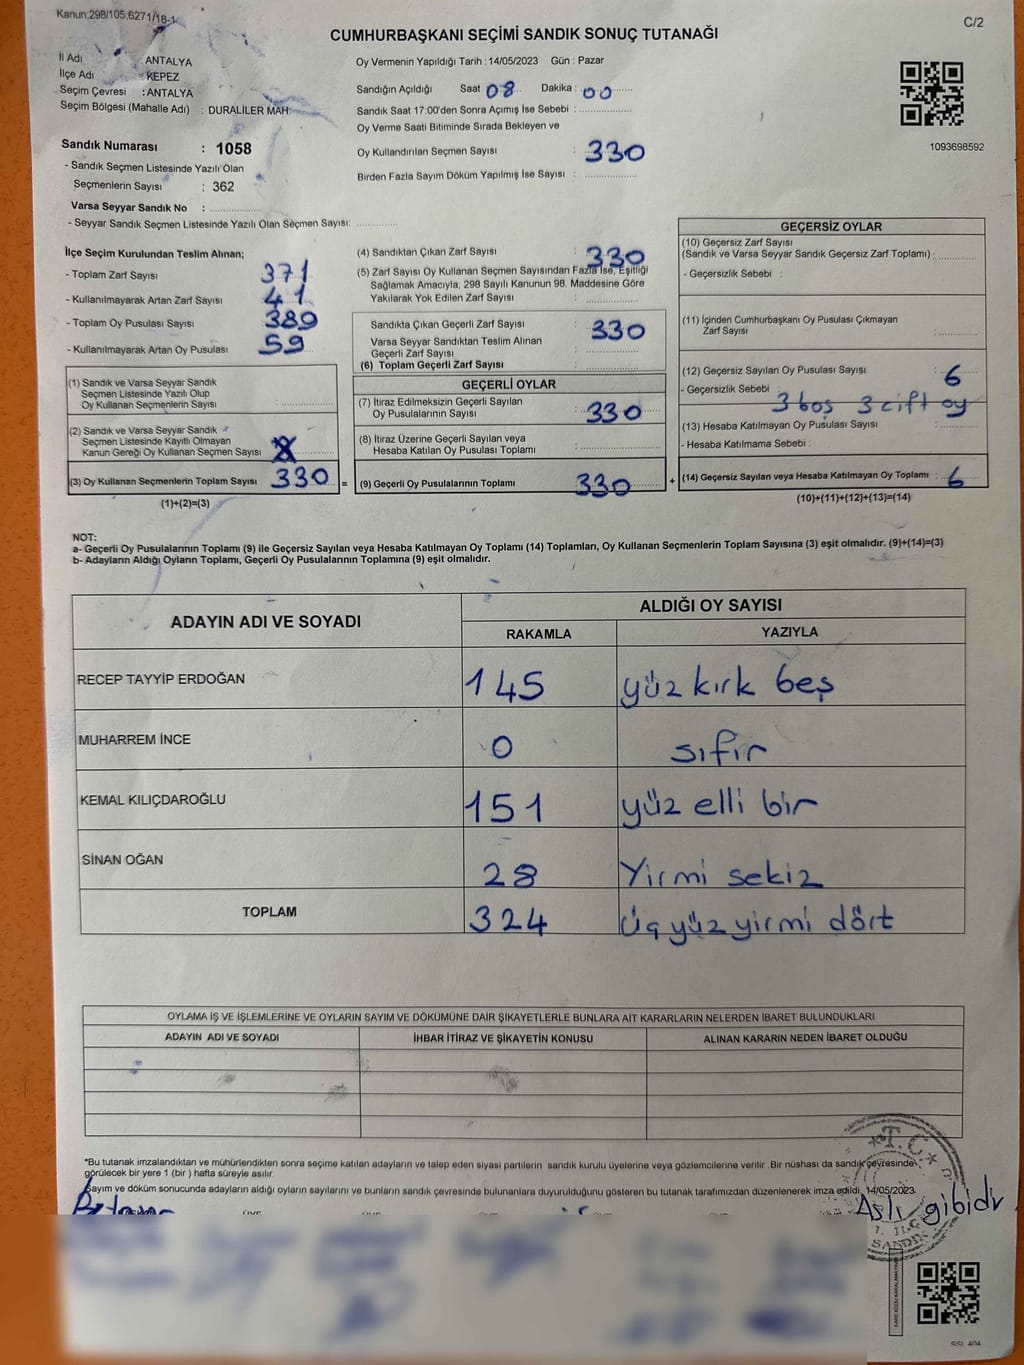 Kanun;298/105,6271/18-1
C/2
CUMHURBAŞKANI SEÇİMİ SANDIK SONUÇ TUTANAĞI
İl Adı : ANTALYA
İlçe Adı : KEPEZ
Seçim Çevresi : ANTALYA
Seçim Bölgesi (Mahalle Adı) : DURALİLER MAH.
Oy Vermenin Yapıldığı Tarih : 14/05/2023 Gün : Pazar
Sandığın Açıldığı Saat 08 Dakika : 00
Sandık Saat 17:00'den Sonra Açımış İse Sebebi :
Oy Verme Saati Bitiminde Sırada Bekleyen ve
Oy Kullandırılan Seçmen Sayısı : 330
Birden Fazla Sayım Döküm Yapılmış İse Sayısı :
1093698592
Sandık Numarası : 1058
- Sandık Seçmen Listesinde Yazılı Olan
Seçmenlerin Sayısı : 362
Varsa Seyyar Sandık No :
- Seyyar Sandık Seçmen Listesinde Yazılı Olan Seçmen Sayısı:
İlçe Seçim Kurulundan Teslim Alınan;
- Toplam Zarf Sayısı 371
- Kullanılmayarak Artan Zarf Sayısı 41
- Toplam Oy Pusulası Sayısı 389
- Kullanılmayarak Artan Oy Pusulası 59
(1) Sandık ve Varsa Seyyar Sandık
Seçmen Listesinde Yazılı Olup
Oy Kullanan Seçmenlerin Sayısı :
(2) Sandık ve Varsa Seyyar Sandık
Seçmen Listesinde Kayıtlı Olmayan
Kanun Gereği Oy Kullanan Seçmen Sayısı
(3) Oy Kullanan Seçmenlerin Toplam Sayısı 330 =
(1)+(2)=(3)
(4) Sandıktan Çıkan Zarf Sayısı : 330
(5) Zarf Sayısı Oy Kullanan Seçmen Sayısından Fazla İse, Eşitliği
Sağlamak Amacıyla; 298 Sayılı Kanunun 98. Maddesine Göre
Yakılarak Yok Edilen Zarf Sayısı :
Sandıkta Çıkan Geçerli Zarf Sayısı : 330
Varsa Seyyar Sandıktan Teslim Alınan
Geçerli Zarf Sayısı
(6) Toplam Geçerli Zarf Sayısı :
GEÇERLİ OYLAR
(7) İtiraz Edilmeksizin Geçerli Sayılan
Oy Pusulalarının Sayısı : 330
(8) İtiraz Üzerine Geçerli Sayılan veya
Hesaba Katılan Oy Pusulası Toplamı :
(9) Geçerli Oy Pusulalarının Toplamı 330 +
GEÇERSİZ OYLAR
(10) Geçersiz Zarf Sayısı
(Sandık ve Varsa Seyyar Sandık Geçersiz Zarf Toplamı) :
- Geçersizlik Sebebi :
(11) İçinden Cumhurbaşkanı Oy Pusulası Çıkmayan
Zarf Sayısı :
(12) Geçersiz Sayılan Oy Pusulası Sayısı : 6
- Geçersizlik Sebebi : 3 boş 3 çift oy
(13) Hesaba Katılmayan Oy Pusulası Sayısı :
- Hesaba Katılmama Sebebi :
(14) Geçersiz Sayılan veya Hesaba Katılmayan Oy Toplamı : 6
(10)+(11)+(12)+(13)=(14)
NOT:
a- Geçerli Oy Pusulalarının Toplamı (9) ile Geçersiz Sayılan veya Hesaba Katılmayan Oy Toplamı (14) Toplamları, Oy Kullanan Seçmenlerin Toplam Sayısına (3) eşit olmalıdır. (9)+(14)=(3)
b- Adayların Aldığı Oyların Toplamı, Geçerli Oy Pusulalarının Toplamına (9) eşit olmalıdır.
ADAYIN ADI VE SOYADI ALDIĞI OY SAYISI
RAKAMLA YAZIYLA
RECEP TAYYİP ERDOĞAN 145 yüz kırk beş
MUHARREM İNCE 0 sıfır
KEMAL KILIÇDAROĞLU 151 yüz elli bir
SİNAN OĞAN 28 Yirmi sekiz
TOPLAM 324 üç yüz yirmi dört
OYLAMA İŞ VE İŞLEMLERİNE VE OYLARIN SAYIM VE DÖKÜMÜNE DAİR ŞİKAYETLERLE BUNLARA AİT KARARLARIN NELERDEN İBARET BULUNDUKLARI
ADAYIN ADI VE SOYADI İHBAR İTİRAZ VE ŞİKAYETİN KONUSU ALINAN KARARIN NEDEN İBARET OLDUĞU
*Bu tutanak imzalandıktan ve mühürlendikten sonra seçime katılan adayların ve talep eden siyasi partilerin sandık kurulu üyelerine veya gözlemcilerine verilir .Bir nüshası da sandık çevresinde
görülecek bir yere 1 (bir ) hafta süreyle asılır.
Sayım ve döküm sonucunda adayların aldığı oyların sayılarını ve bunların sandık çevresinde bulunanlara duyurulduğunu gösteren bu tutanak tarafımızdan düzenlenerek imza edildi. 14/05/2023
T.C
Aslı gibidir
1. İLÇ
SANDIK